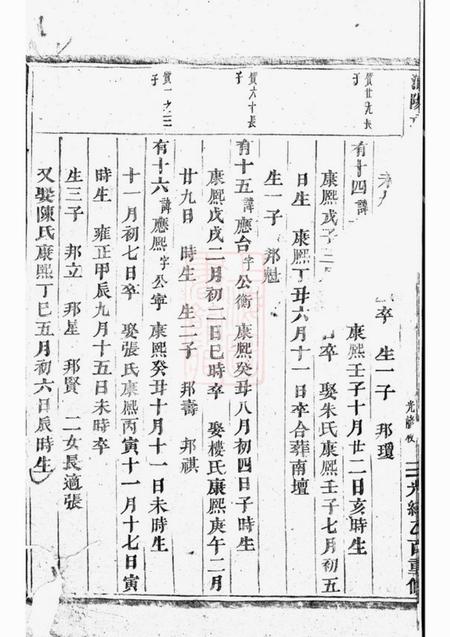 卒 生一子 邦瓊
有十四 諱 康熙壬子十月廿二日亥時生
康熙戊子 卒 娶朱氏康熙壬子七月初五
日 生 康熙丁丑六月十一日卒合葬南壇
生一子 邦魁
質六十長子
有十五 諱應台 字公衡 康熙癸丑八月初四日子時生
康熙戊戌二月初二日巳時卒 娶樓氏康熙庚午二月
廿九日 時生 生二子 邦壽 邦祺
質一之三子
有十六 諱應熙 字公寧 康熙癸丑十月十一日未時生
十一月初七日卒 娶張氏康熙丙寅十一月十七日寅
時生 雍正甲辰九月十五日未時卒
生三子 邦立 邦星 邦賢 二女長適張
又娶陳氏康熙丁巳五月初六日辰時生
光緒乙酉重修